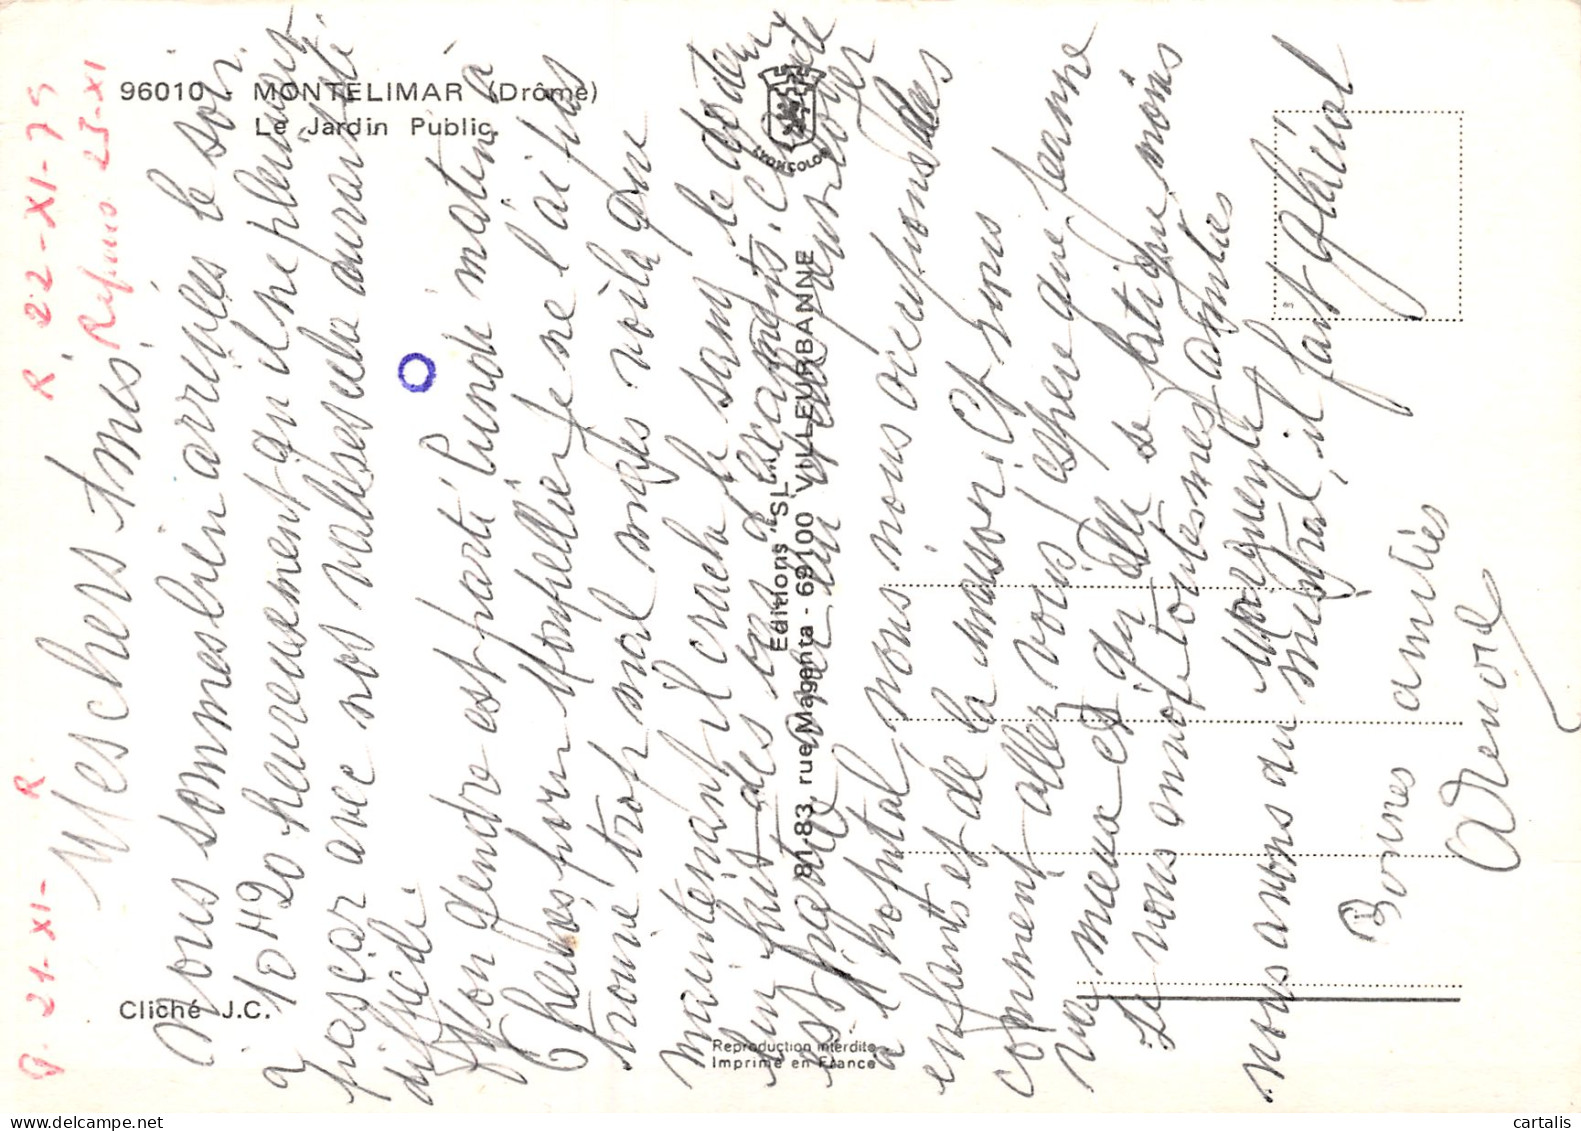 96010 - MONTELIMAR (Drôme)
Le Jardin Public.
R 22-XI-75
Refus 23-XI
g. 21-XI- R
Mes chers Amis
Nous sommes bien arrivées le soir
10H20 heureusement qu'il ne pleuvait
pas car avec nos valises cela aurait été
difficile.
Mon gendre est parti lundi matin à
6 heures pour Montpellier je ne l'ai pas
trouvé trop mal mais voilà que
maintenant il crache le sang le docteur
lui fait des
est
à l'hopital, nous nous occupons des
enfants et de la maison. Et vous
comment allez vous j'espère que Jeanne
va mieux et qu'elle se fatigue moins
Je vous envoie toutes mes amitiés
Marguerite
nous avons du mistral, il fait glacial
Bonnes amitiés
Editions "SL"
81-83, rue Magenta - 69100 VILLEURBANNE
LYONCOLOR
Cliché J.C.
Reproduction interdite
Imprimé en France
cartalis